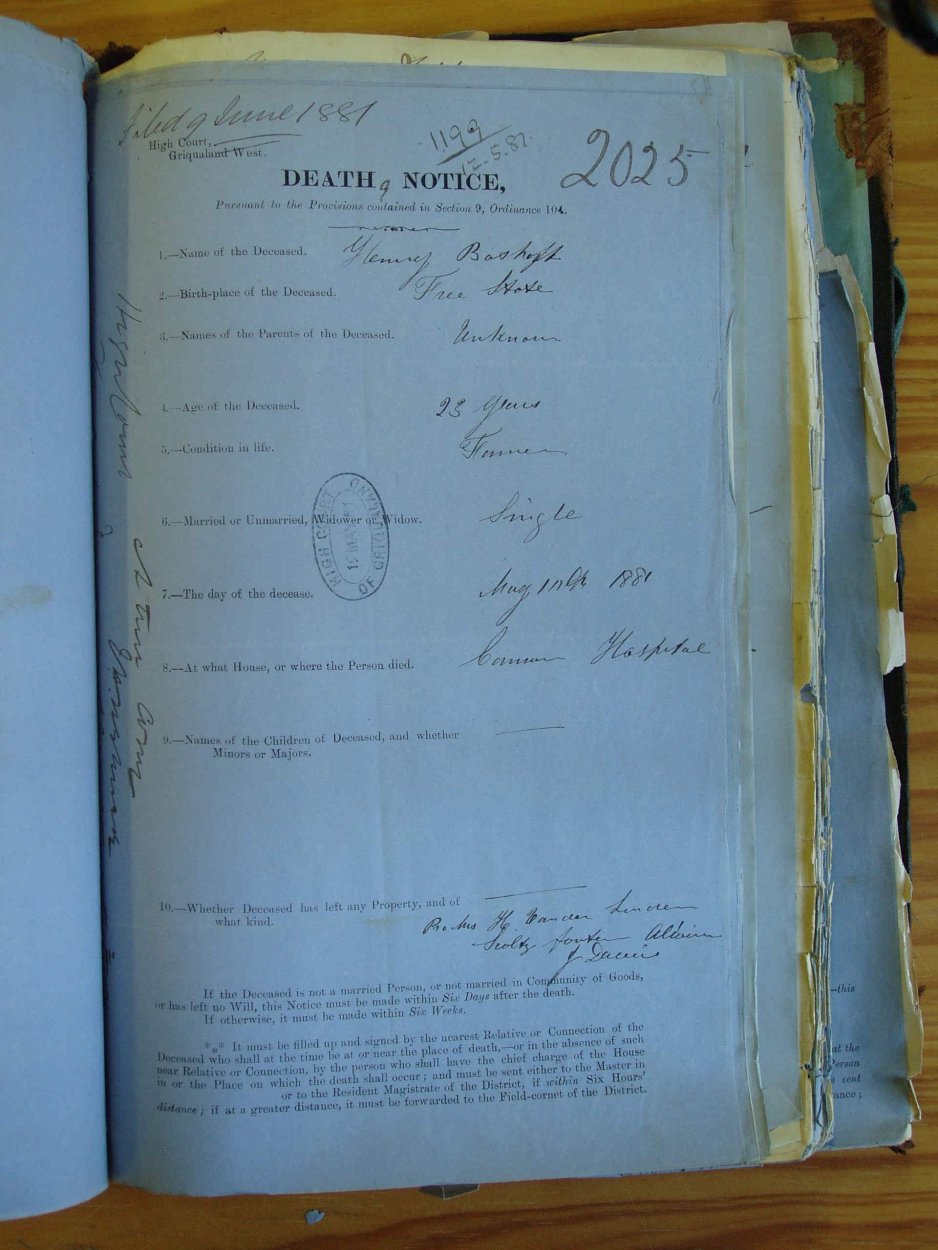 Filed 9 June 1881
High Court,
Griqualand West.
1199
12.5.81
2025
DEATH NOTICE,
Pursuant to the Provisions contained in Section 9, Ordinance 104.
1.—Name of the Deceased. Henry Boshoff
2.—Birth-place of the Deceased. Free State
3.—Names of the Parents of the Deceased. Unknown
4.—Age of the Deceased. 23 Years
5.—Condition in life. Farmer
6.—Married or Unmarried, Widower or Widow. Single
HIGH COURT OF GRIQUALAND
7.—The day of the decease. May 1881
8.—At what House, or where the Person died. Carnarvon Hospital
9.—Names of the Children of Deceased, and whether
Minors or Majors.
10.—Whether Deceased has left any Property, and of
what kind.
Mrs H. Vander Linden
Aliwin
J Davis
If the Deceased is not a married Person, or not married in Community of Goods,
or has left no Will, this Notice must be made within Six Days after the death.
If otherwise, it must be made within Six Weeks.
*** It must be filled up and signed by the nearest Relative or Connection of the
Deceased who shall at the time be at or near the place of death,—or in the absence of such
near Relative or Connection, by the person who shall have the chief charge of the House
in or the Place on which the death shall occur; and must be sent either to the Master in
or to the Resident Magistrate of the District, if within Six Hours'
distance; if at a greater distance, it must be forwarded to the Field-cornet of the District.
—this
at the
Person
e sent
ance;